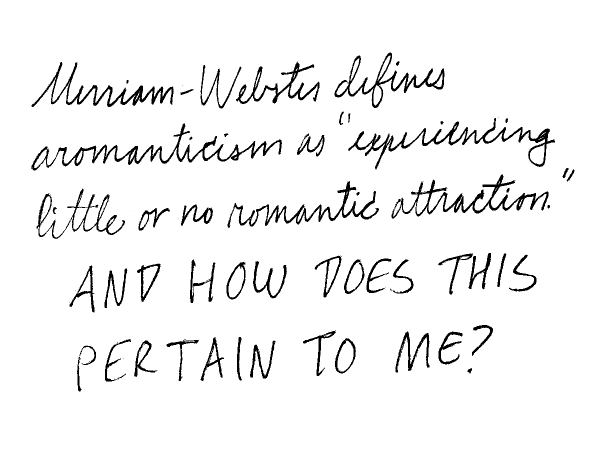 Merriam-Webster defines
aromanticism as "experiencing
little or no romantic attraction."
AND HOW DOES THIS
PERTAIN TO ME?